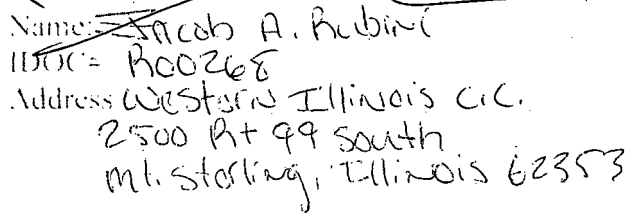 Name: Jacob A. Rubini
IDOC# R00268
Address Western Illinois C.C.
2500 Rt 99 South
Mt. Sterling, Illinois 62353